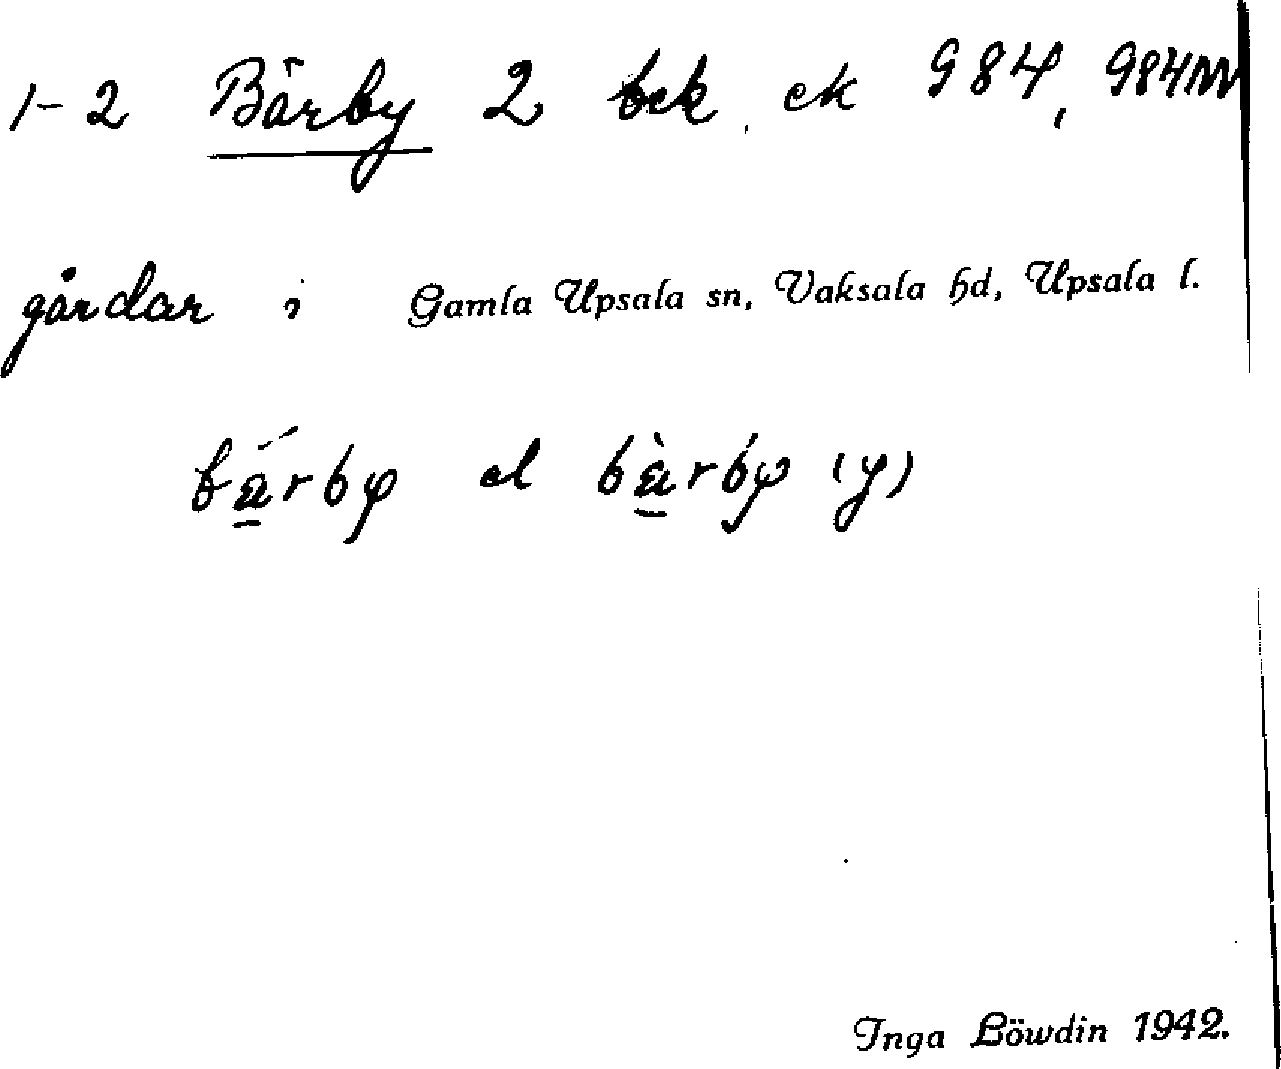 1-2 Bärby 2 bek. ek 984, 984 NV
gårdar i Gamla Upsala sn, Vaksala hd, Upsala l.
bä́rbφ el bä̀rbφ́ (y)
Inga Löwdin 1942.